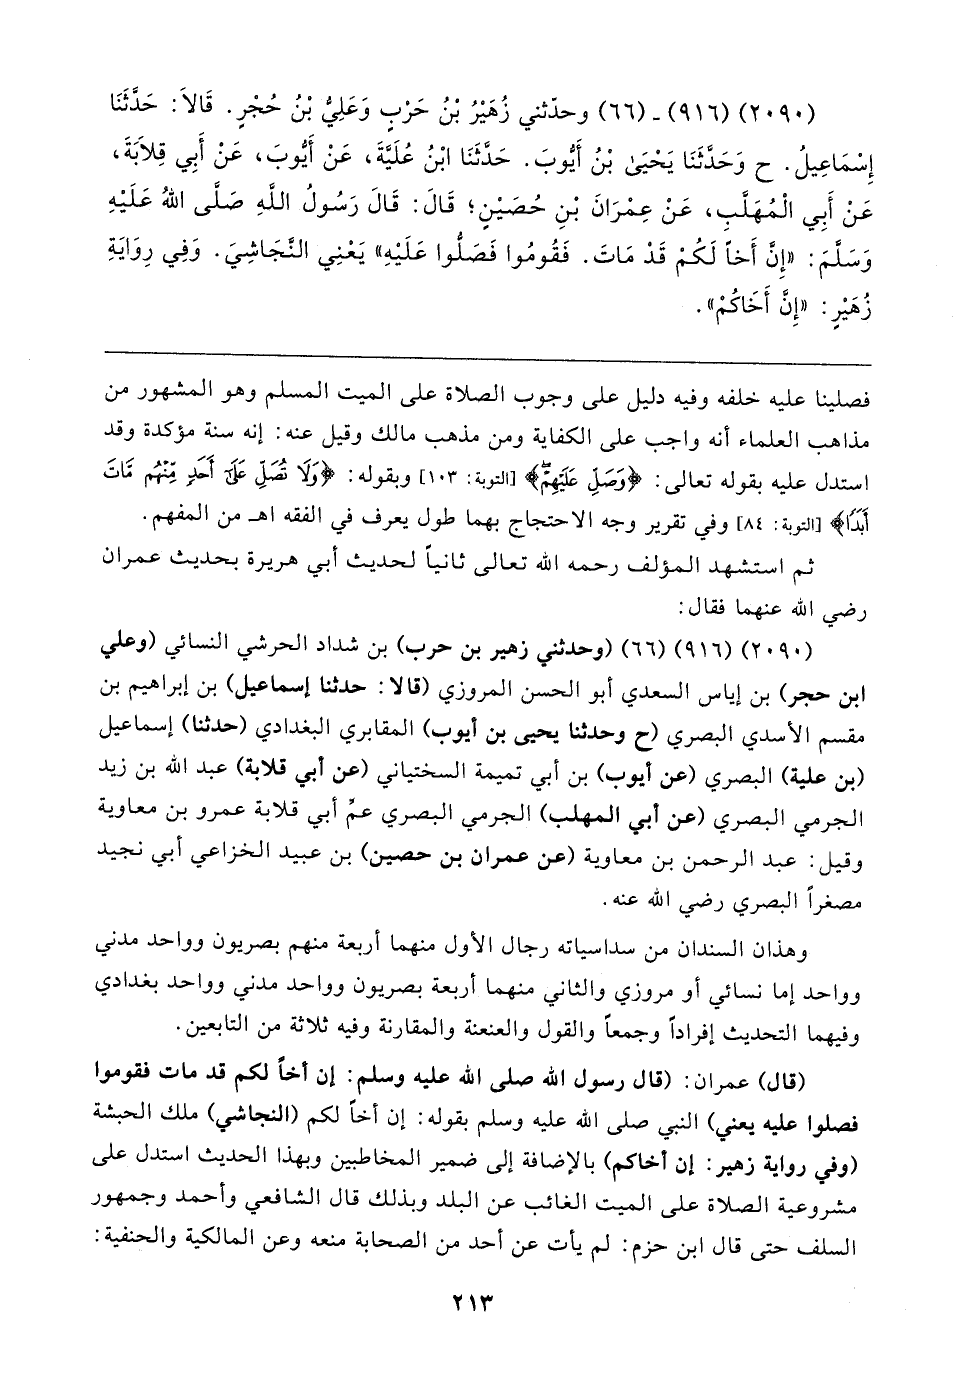 (٢٠٩٠) (٩١٦) - (٦٦) وحدّثني زُهَيْرُ بْنُ حَرْبٍ وَعَلِيُّ بْنُ حُجْرٍ. قَالاَ: حَدَّثَنَا
إِسْمَاعِيلُ. ح وَحَدَّثَنَا يَحْيَىٰ بْنُ أَيُّوبَ. حَدَّثَنَا ابْنُ عُلَيَّةَ، عَنْ أَيُّوبَ، عَنْ أَبِي قِلابَةَ،
عَنْ أَبِي الْمُهَلَّبِ، عَنْ عِمْرَانَ بْنِ حُصَيْنٍ؛ قَالَ: قَالَ رَسُولُ اللَّهِ صَلَّى اللهُ عَلَيْهِ
وَسَلَّمَ: «إِنَّ أَخاً لَكُمْ قَدْ مَاتَ. فَقُومُوا فَصَلُّوا عَلَيْهِ» يَعْنِي النَّجَاشِيَ. وَفِي رِوَايَةِ
زُهَيْرٍ: «إِنَّ أَخَاكُمْ».
فصلينا عليه خلفه وفيه دليل على وجوب الصلاة على الميت المسلم وهو المشهور من
مذاهب العلماء أنه واجب على الكفاية ومن مذهب مالك وقيل عنه: إنه سنة مؤكدة وقد
استدل عليه بقوله تعالى: ﴿وَصَلِّ عَلَيْهِمْ﴾ [التوبة: ١٠٣] وبقوله: ﴿وَلَا تُصَلِّ عَلَىٰٓ أَحَدٍ مِّنْهُم مَّاتَ
أَبَدًا﴾ [التوبة: ٨٤] وفي تقرير وجه الاحتجاج بهما طول يعرف في الفقه اهـ من المفهم.
ثم استشهد المؤلف رحمه الله تعالى ثانياً لحديث أبي هريرة بحديث عمران
رضي الله عنهما فقال:
(٢٠٩٠) (٩١٦) (٦٦) (وحدثني زهير بن حرب) بن شداد الحرشي النسائي (وعلي
ابن حجر) بن إياس السعدي أبو الحسن المروزي (قالا: حدثنا إسماعيل) بن إبراهيم بن
مقسم الأسدي البصري (ح وحدثنا يحيى بن أيوب) المقابري البغدادي (حدثنا) إسماعيل
(بن علية) البصري (عن أيوب) بن أبي تميمة السختياني (عن أبي قلابة) عبد الله بن زيد
الجرمي البصري (عن أبي المهلب) الجرمي البصري عمِّ أبي قلابة عمرو بن معاوية
وقيل: عبد الرحمن بن معاوية (عن عمران بن حصين) بن عبيد الخزاعي أبي نجيد
مصغراً البصري رضي الله عنه.
وهذان السندان من سداسياته رجال الأول منهما أربعة منهم بصريون وواحد مدني
وواحد إما نسائي أو مروزي والثاني منهما أربعة بصريون وواحد مدني وواحد بغدادي
وفيهما التحديث إفراداً وجمعاً والقول والعنعنة والمقارنة وفيه ثلاثة من التابعين.
(قال) عمران: (قال رسول الله صلى الله عليه وسلم: إن أخاً لكم قد مات فقوموا
فصلوا عليه يعني) النبي صلى الله عليه وسلم بقوله: إن أخاً لكم (النجاشي) ملك الحبشة
(وفي رواية زهير: إن أخاكم) بالإضافة إلى ضمير المخاطبين وبهذا الحديث استدل على
مشروعية الصلاة على الميت الغائب عن البلد وبذلك قال الشافعي وأحمد وجمهور
السلف حتى قال ابن حزم: لم يأت عن أحد من الصحابة منعه وعن المالكية والحنفية:
٢١٣